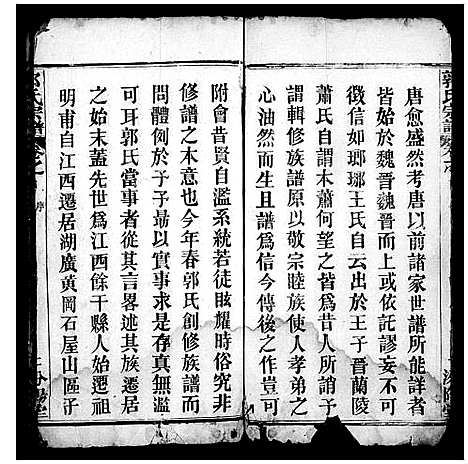 郭氏宗譜
唐愈盛然考唐以前諸家世譜所能詳者
皆始於魏晉魏晉而上或依託謬妄不可
徵信如瑯琊王氏自云出於王子晉蘭陵
蕭氏自謂本蕭何望之皆爲昔人所誚予
謂輯修族譜原以敬宗睦族使人孝弟之
心油然而生且譜爲信今傳後之作豈可
附會昔賢自濫系統若徒眩耀時俗究非
修譜之本意也今年春郭氏創修族譜而
問體例於予予勗以實事求是存真無濫
可耳郭氏當事者從其言畧述其源流譜
之始末蓋先世爲江西餘干縣人始遷祖
明甫自江西遷居湖廣黃岡石屋山區子
郭氏宗譜
序
汾陽堂